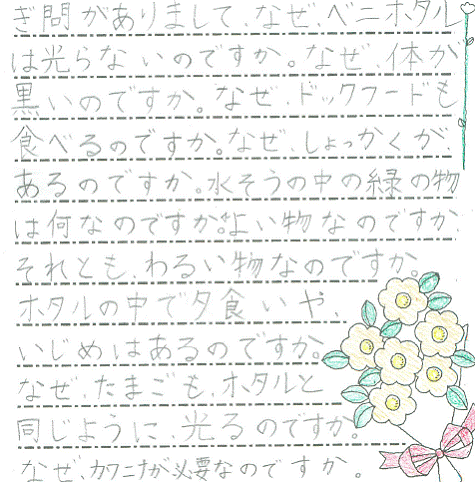 ぎ問がありまして、なぜ、ベニホタル
は光らないのですか。なぜ、体が
黒いのですか。なぜ、ドックフードも
食べるのですか。なぜ、しょっかくが、
あるのですか。水そうの中の緑の物
は何なのですか。よい物なのですか、
それとも、わるい物なのですか。
ホタルの中で夕食いや、
いじめはあるのですか。
なぜたまごも、ホタルと
同じように、光るのですか。
なぜ、カワニナが必要なのですか。